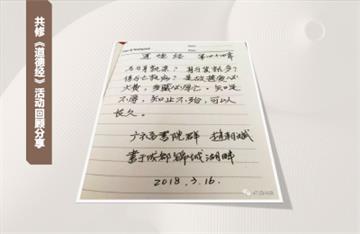 共修《道德经》活动回顾分享
道德经 第四十四章
名与身孰亲？身与货孰多？
得与亡孰病？是故甚爱必
大费，多藏必厚亡。知足
不辱，知止不殆，可以
长久。
书院群
书于成都锦城湖畔
2018.3.16.